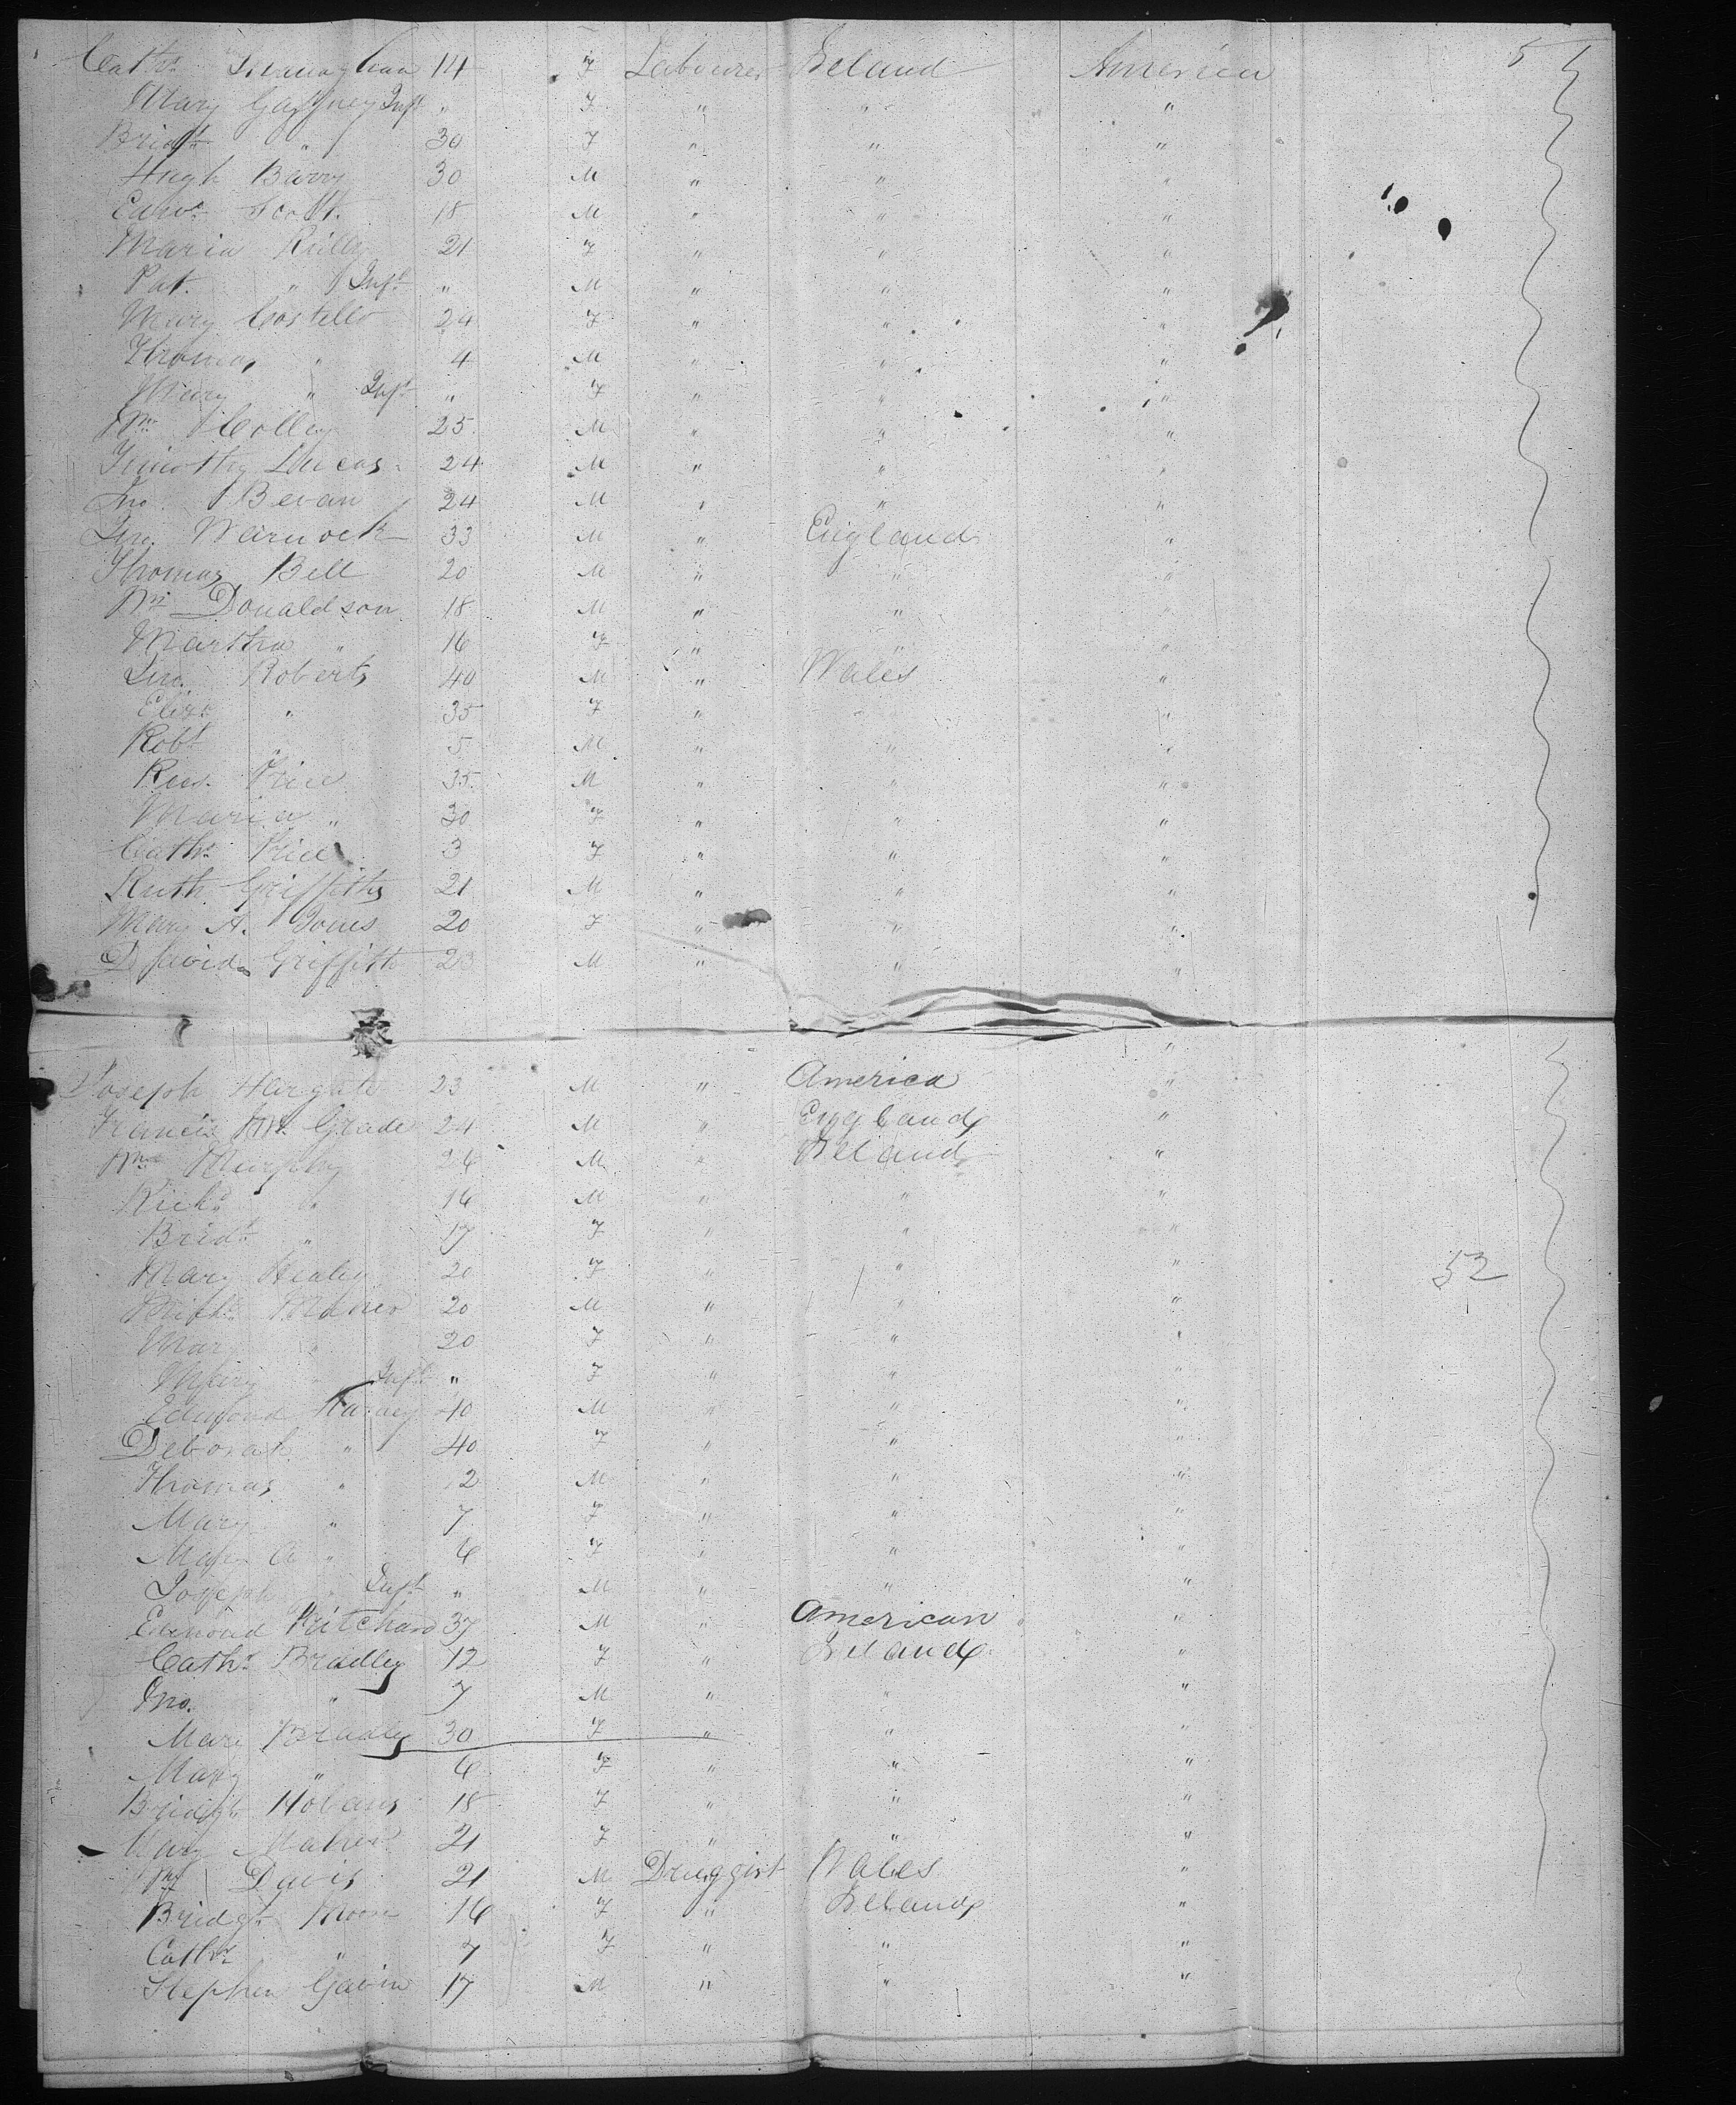 Cath: 14 F Labourer Ireland America 51
Mary Gaffney Inft " F " " "
Bridt " 30 F " " "
Hugh Barry 30 M " " "
Edwd Scott. 18 M " " "
Maria Reilly 21 F " " "
Pat. " Inft " M " " "
Mary Costello 24 F " " "
Thomas " 4 M " " "
Mary " Inft " F " " "
Wm Colley 25 M " " "
Timothy Lucas 24 M " " "
Jno. Bevan 24 M " " "
Jno. Warnock 33 M " England "
Thomas Bell 20 M " " "
Wm Donaldson 18 M " " "
Martha " 16 F " " "
Jno. Roberts 40 M " Wales "
Eliza " 35 F " "
Robt " 5 M " " "
Price 35 M " " "
Maria " 30 F " " "
Cath: Price 3 F " " "
Ruth Griffiths 21 M " " "
Mary A. Jones 20 F " " "
David Griffith 23 M " " "
Joseph 23 M " America "
Francis Mc Grade 24 M " England "
Wm Murphy 26 M " Ireland "
Richd " 16 M " " "
Bridt " 17 F " " "
Mary Healey 20 F " " "
20 M " " "
Mary " 20 F " " "
Mary " Inft " F " " "
Edmond 40 M " " "
Deborah " 40 F " " "
Thomas " 12 M " " "
Mary " 7 F " " "
Mary A " 6 F " " "
Joseph " Inft " M " " "
Edmond Pritchard 37 M " American "
Cath: Bradley 12 F " Ireland "
Jno. " 7 M " " "
Mary Bradley 30 F " " "
Mary " 6 F " " "
Bridgt Hobans 18 F " " "
Mary Maher 21 F " " "
Wm Davis 21 M Druggist Wales "
Bridgt Moon 16 F " Ireland "
Cath: " 7 F " " "
Stephen Gavin 17 M " " "
52